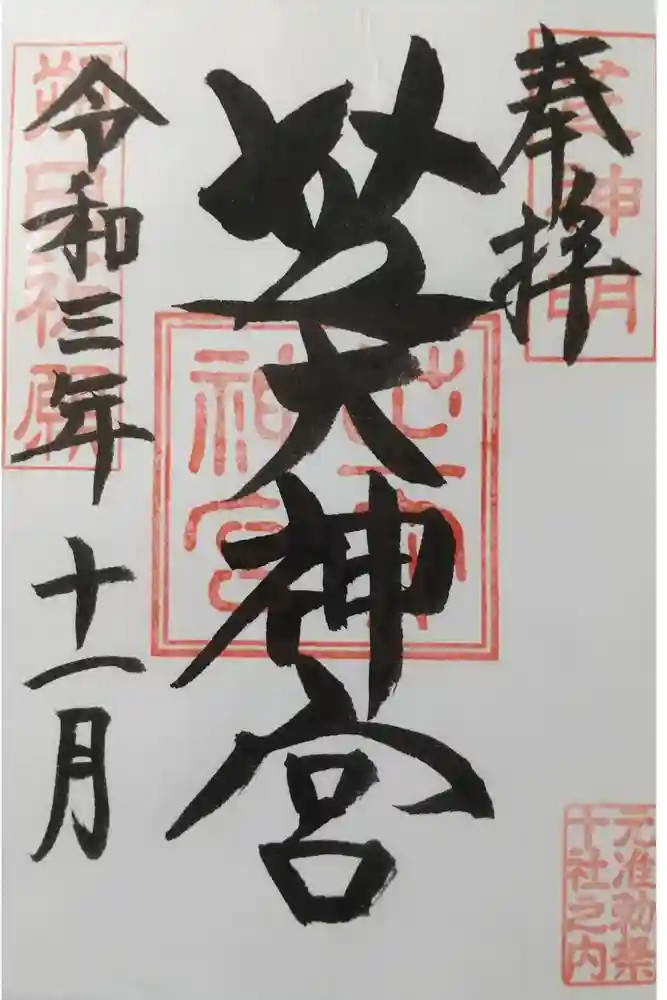 奉拝
芝神明
元准勅祭
十社之内
芝大神宮
芝大
神宮
令和三年十一月
朔日祈願